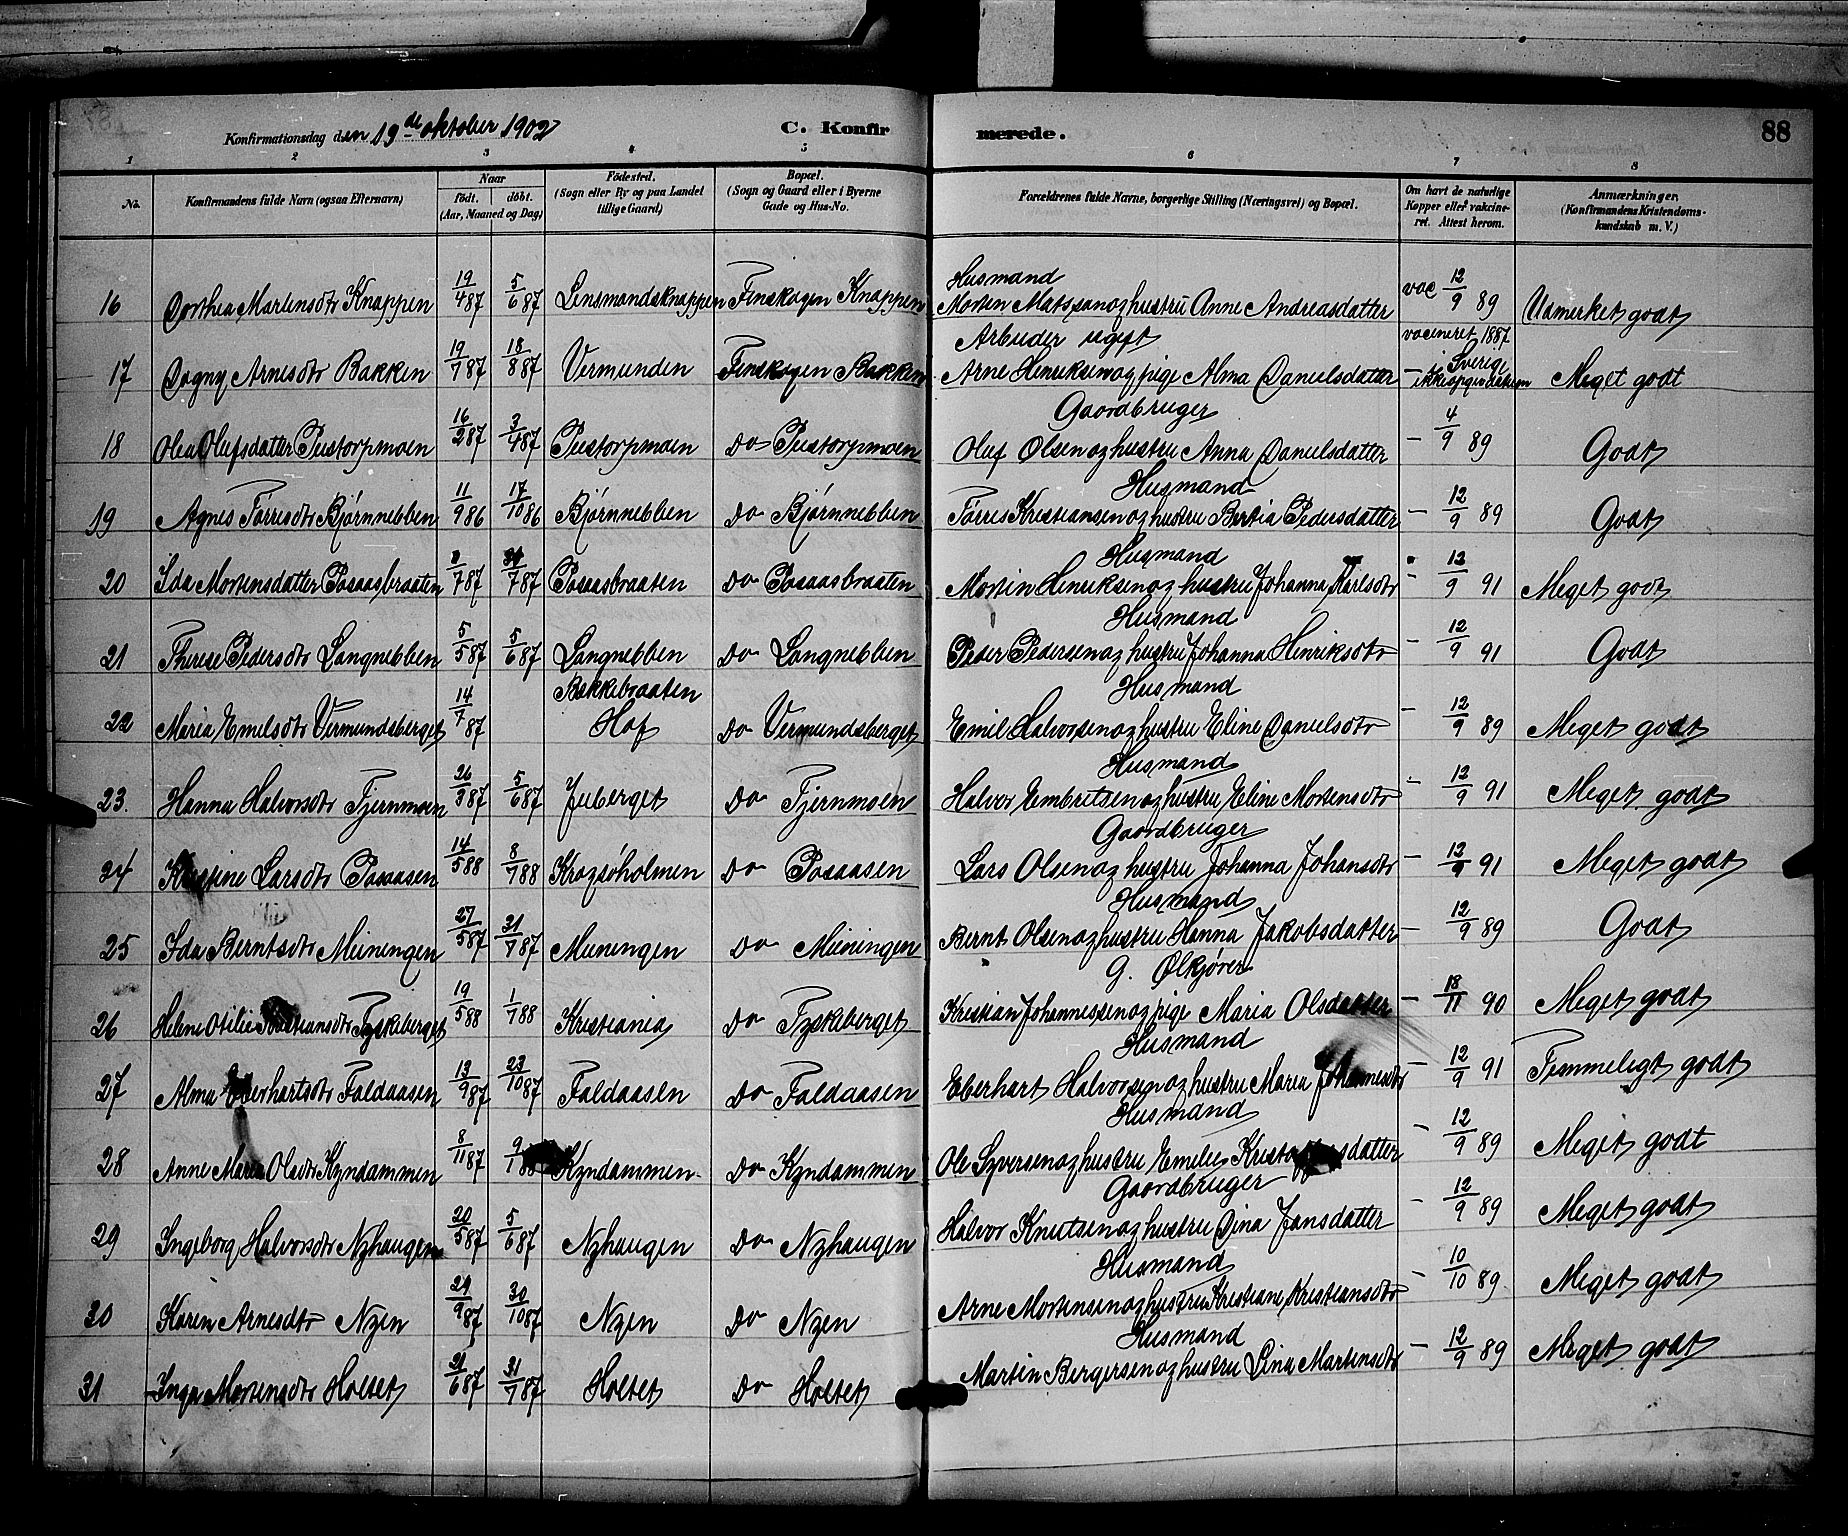 88
Konfirmationsdag den 19de oktober 1902
C. Konfirmerede.
1 2 3 4 5 6 7 8
No. Konfirmandens fulde Navn (ogsaa Efternavn) Naar født. døbt. (Aar, Maaned og Dag) Fødested. (Sogn eller By og paa Landet tillige Gaard) Bopæl. (Sogn og Gaard eller i Byerne Gade og Hus-No. Forældrenes fulde Navne, borgerlige Stilling (Næringsvei) og Bopæl. Om havt de naturlige Kopper eller vakcineret. Attest herom. Anmærkninger. (Konfirmandens Kristendomskundskab m. V.)
Husmand
16 Dorthea Martensdtr Knappen 19/4 87 5/6 87 Lensmandsknappen Finskogen Knappen Morten Matssen og hustru Anne Andreasdatter vac 12/9 89 Udmerket godt
Arbeider ugift
17 Dagny Arnesdtr Bakken 19/7 87 18/8 87 Vermunden Finskogen Bakken Arne Henriksen og pige Alma Danielsdatter vaccineret 1887 i Sverige Meget godt
Gaardbruger
18 Olea Olufsdatter Pustorpmoen 16/2 87 3/4 87 Pustorpmoen Do Pustorpmoen Oluf Olsen og hustru Anna Danielsdatter - 4/9 89 Godt
Husmand
19 Agnes Tørresdtr Bjørnnebben 11/9 86 17/10 86 Bjørnnebben Do Bjørnnebben Tørres Kristiansen og hustru Bertia Pedersdatter - 12/9 89 Godt
Husmand
20 Ida Mortensdatter Posaasbraaten /7 87 /7 87 Posaasbraaten Do Posaasbraaten Morten Henriksen og hustru Johanna Karlsdtr - 12/9 91 Meget godt
Husmand
21 Therese Pedersdtr Langnebben 5/5 87 5/6 87 Langnebben Do Langnebben Peder Pedersen og hustru Johanna Henriksdtr - 12/9 91 Godt
Bakkebraaten Husmand
22 Maria Emelsdtr Vermundsberget 14/7 87 Hof Do Vermundsberget Emil Halvorsen og hustru Eline Danielsdtr - 12/9 89 Meget godt
Husmand
23. Hanna Halvorsdtr Tjernmoen 26/3 87 5/6 87 Juberget Do Tjernmoen Halvor Embretsen og hustru Eline Mortensdtr - 12/9 91 Meget godt
Gaardbruger
24 Kristine Larsdtr Posaasen 14/5 88 8/7 88 Krogsøholmen Do Posaasen Lars Olsen og hustru Johanna Johansdtr - 12/9 91 Meget godt
Husmand
25 Ida Berntsdtr Meiningen 27/5 87 31/7 87 Meiningen Do Meiningen Bernt Olsen og hustru Hanna Jakobsdatter - 12/9 89 Godt
G. Ølkjører
26 Helene Otilie Kristiansdtr Tyskeberget 19/5 88 1/7 88 Kristiania Do Tyskeberget Kristian Johannessen og pige Maria Olsdatter - 18/11 90 Meget godt
Husmand
27 Alma Eberhartsdtr Faldaasen 13/9 87 23/10 87 Faldaasen Do Faldaasen Eberhart Halvorsen og hustru Maria Johannesdtr - 12/9 91 Temmeligt godt
Husmand
28 Anne Maria Olsdtr Kyndammen 8/11 87 9/1 88 Kyndammen Do Kyndammen Ole Syversen og hustru Emelie Kristoffersdatter - 12/9 89 Meget godt
Gaardbruger
29 Ingeborg Halvorsdtr Nyhaugen 20/5 87 5/6 87 Nyhaugen Do Nyhaugen Halvor Knutsen og hustru Dina Jansdatter - 12/9 89 Meget godt
Husmand
30 Karen Arnesdtr Nyen 24/9 87 30/10 87 Nyen Do Nyen Arne Mortensen og hustru Kristiane Kristiansdtr - 10/10 89 Meget godt
Husmand
31 Inga Martensdtr Holtet 21/6 87 31/7 87 Holtet Do Holtet Martin Bergersen og hustru Lina Martensdtr - 12/9 89 Meget godt